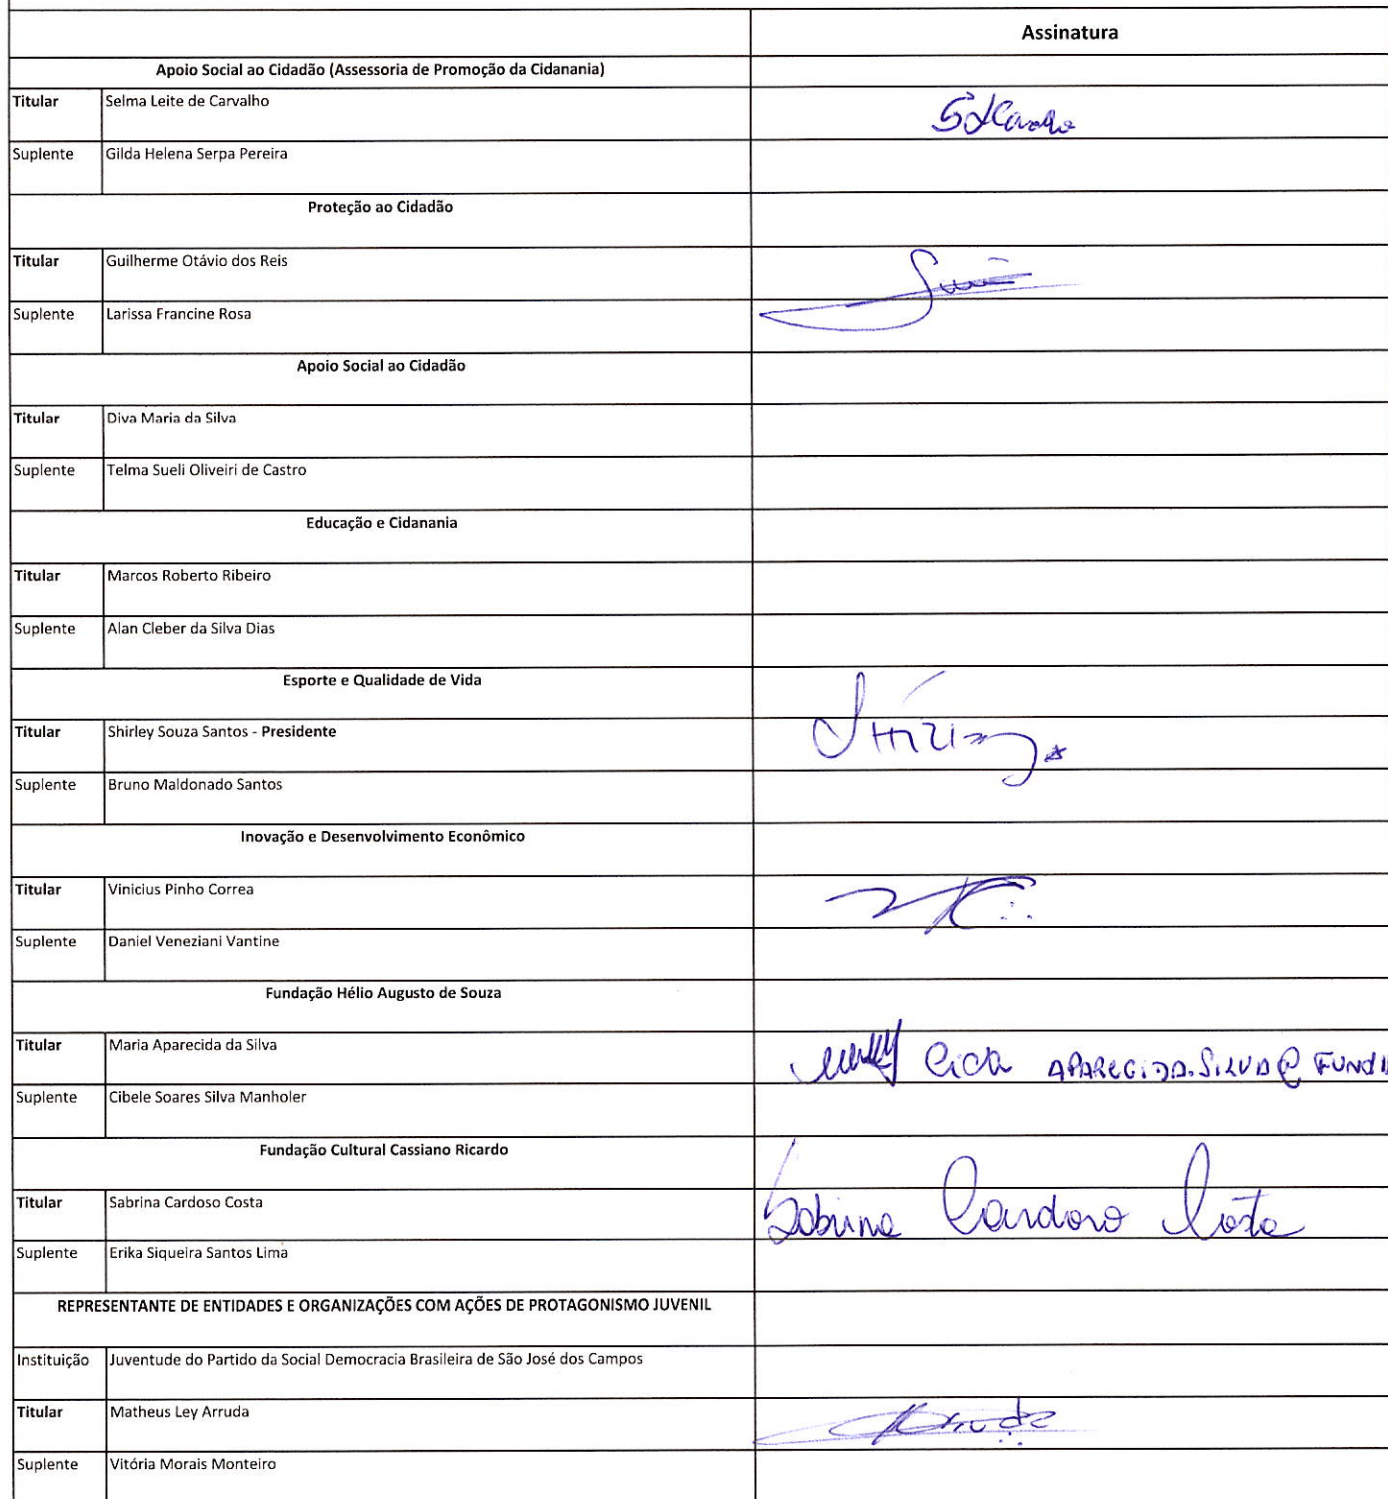 Assinatura
Apoio Social ao Cidadão (Assessoria de Promoção da Cidanania)
Titular Selma Leite de Carvalho
Suplente Gilda Helena Serpa Pereira
Proteção ao Cidadão
Titular Guilherme Otávio dos Reis
Suplente Larissa Francine Rosa
Apoio Social ao Cidadão
Titular Diva Maria da Silva
Suplente Telma Sueli Oliveiri de Castro
Educação e Cidanania
Titular Marcos Roberto Ribeiro
Suplente Alan Cleber da Silva Dias
Esporte e Qualidade de Vida
Titular Shirley Souza Santos - Presidente
Suplente Bruno Maldonado Santos
Inovação e Desenvolvimento Econômico
Titular Vinicius Pinho Correa
Suplente Daniel Veneziani Vantine
Fundação Hélio Augusto de Souza
Titular Maria Aparecida da Silva Cida APARECIDA.SILVA@FUND
Suplente Cibele Soares Silva Manholer
Fundação Cultural Cassiano Ricardo
Titular Sabrina Cardoso Costa Sabrina Cardoso Costa
Suplente Erika Siqueira Santos Lima
REPRESENTANTE DE ENTIDADES E ORGANIZAÇÕES COM AÇÕES DE PROTAGONISMO JUVENIL
Instituição Juventude do Partido da Social Democracia Brasileira de São José dos Campos
Titular Matheus Ley Arruda
Suplente Vitória Morais Monteiro